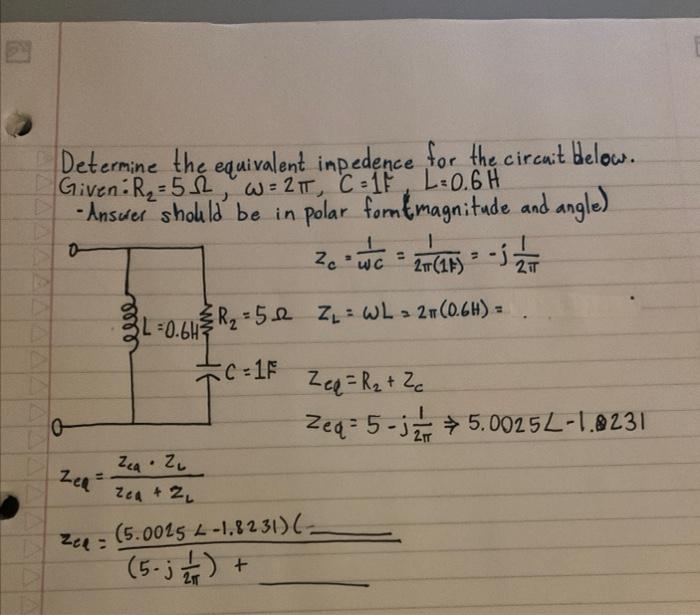 Determine the equivalent impedence for the circuit below.
Given: R₂ = 5 Ω, ω = 2π, C = 1F, L = 0.6H
- Answer should be in polar form (magnitude and angle)
Z_c = 1/ωC = 1/2π(1F) = -j 1/2π
L = 0.6H
R₂ = 5 Ω
Z_L = ωL = 2π(0.6H) =
C = 1F
Zeq = R₂ + Z_c
Zeq = 5 - j 1/2π ⇒ 5.0025∠-1.8231
Zeq = Zeq · Z_L / Zeq + Z_L
Zeq = (5.0025 ∠ -1.8231)(______ / (5 - j 1/2π) + ______